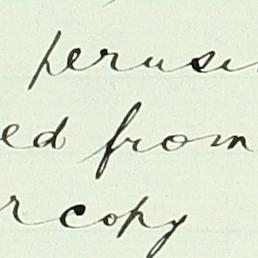 perusi
ed from
r copy